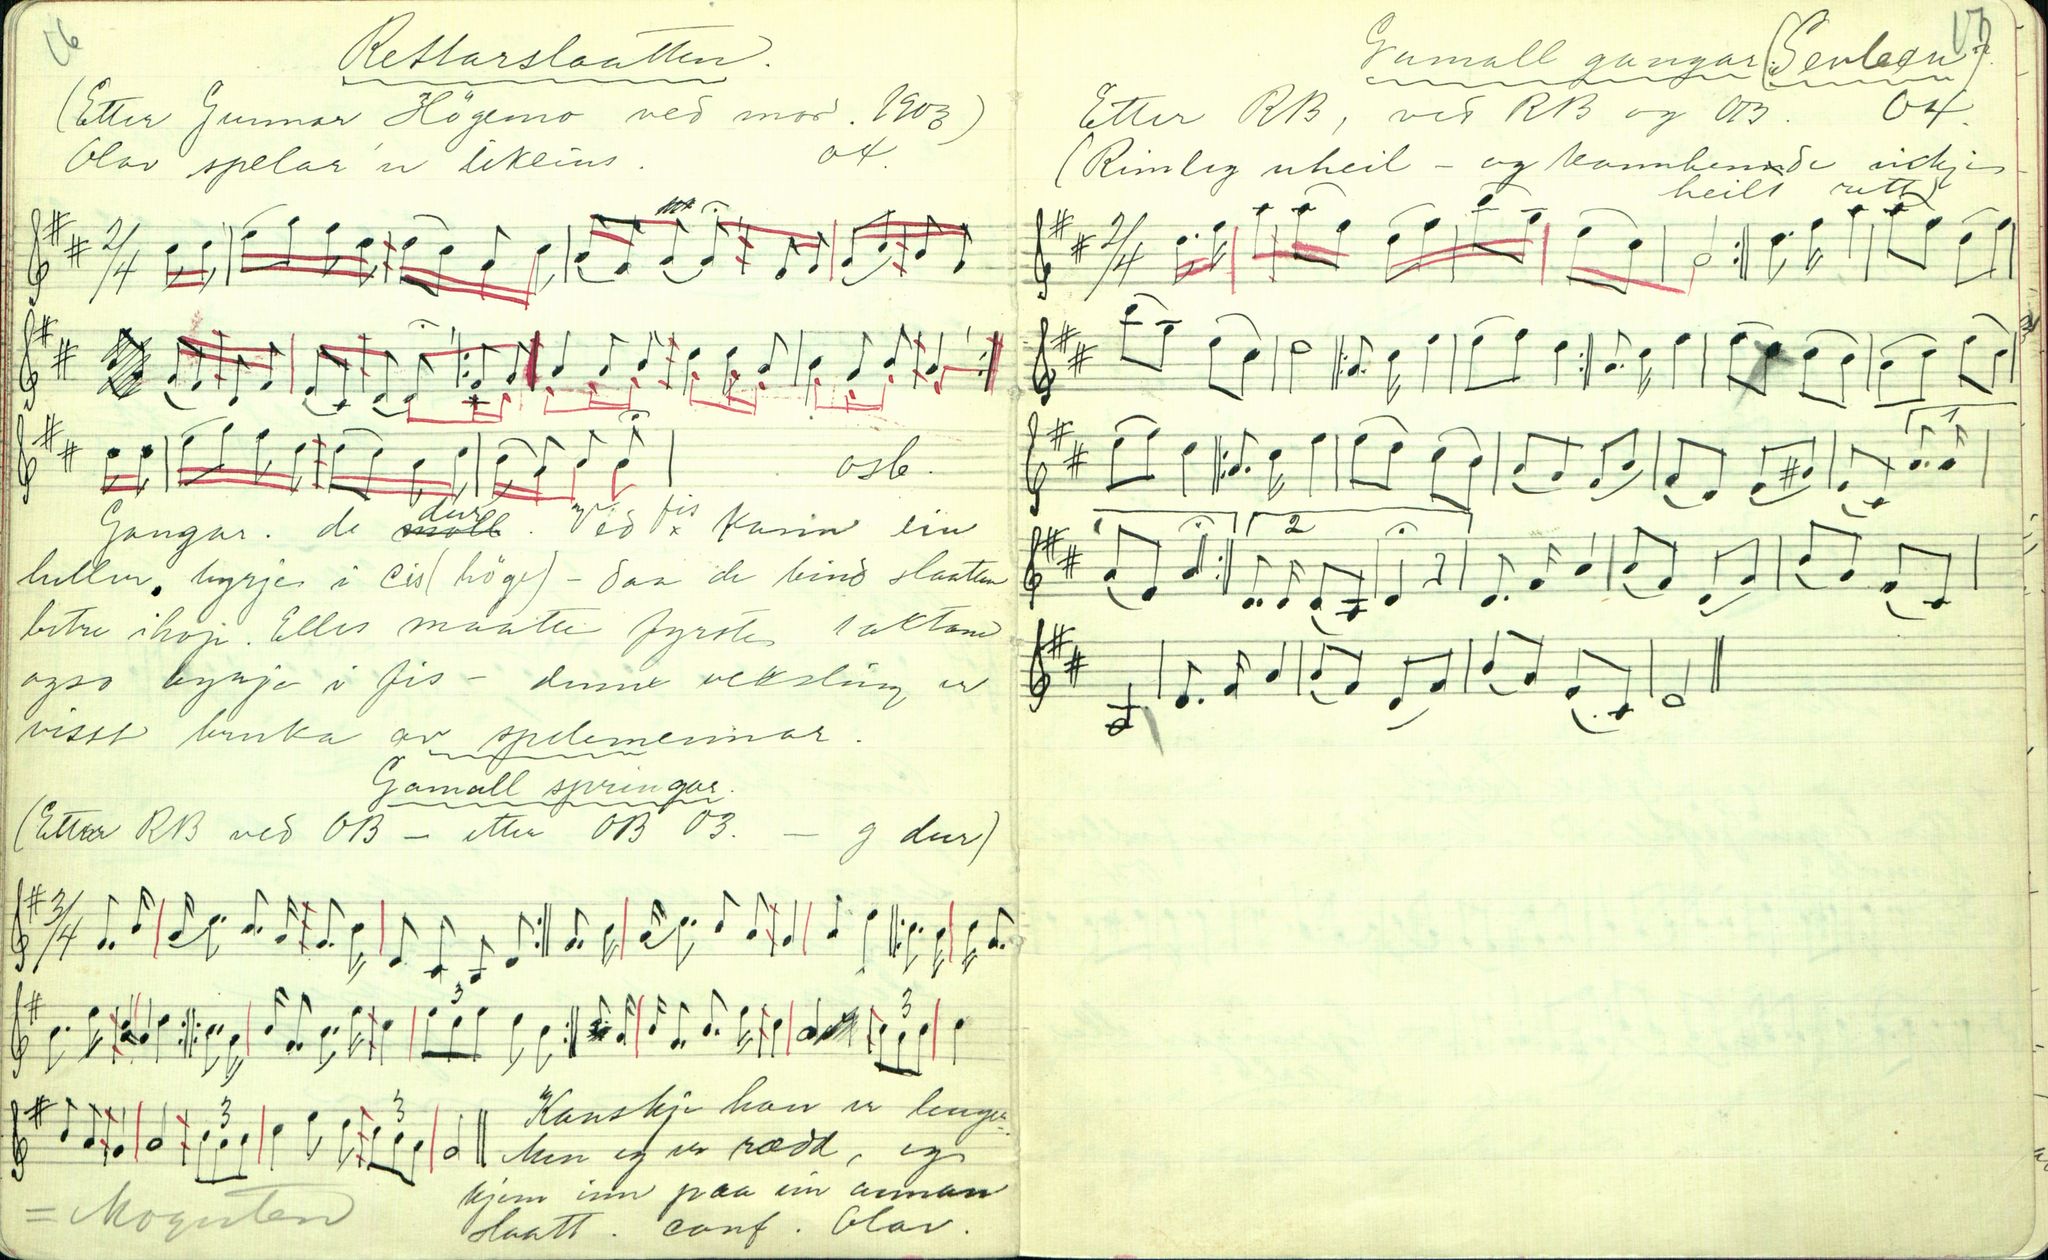 16
Rettarslaatten.
(Etter Gunnar Högemo ved mor. 1903)
Olav spelar'n likeins. 04.
2/4
osb.
Gangar. de dur moll. Ved fis x kann ein
heller byrje i cis (höge) - daa de bind slaatten
betre ihop. Elles maatte fyrste taktane
ogso byrje i fis - denne veksling er
visst bruka av spelemennar.
Gamall springar.
(Etter RB ved OB - etter OB 03. - g dur)
3/4
3
3
3
3
Kanskje han er lenger
Men eg er rædd, eg
kjem inn paa ein annan
slaatt. conf. Olav.
= Moguten
17
Gamall gangar
Etter RB, ved RB og OB. 04.
(Rimleg uheil - og kannhende ikkje
heilt rett)
2/4
1
2